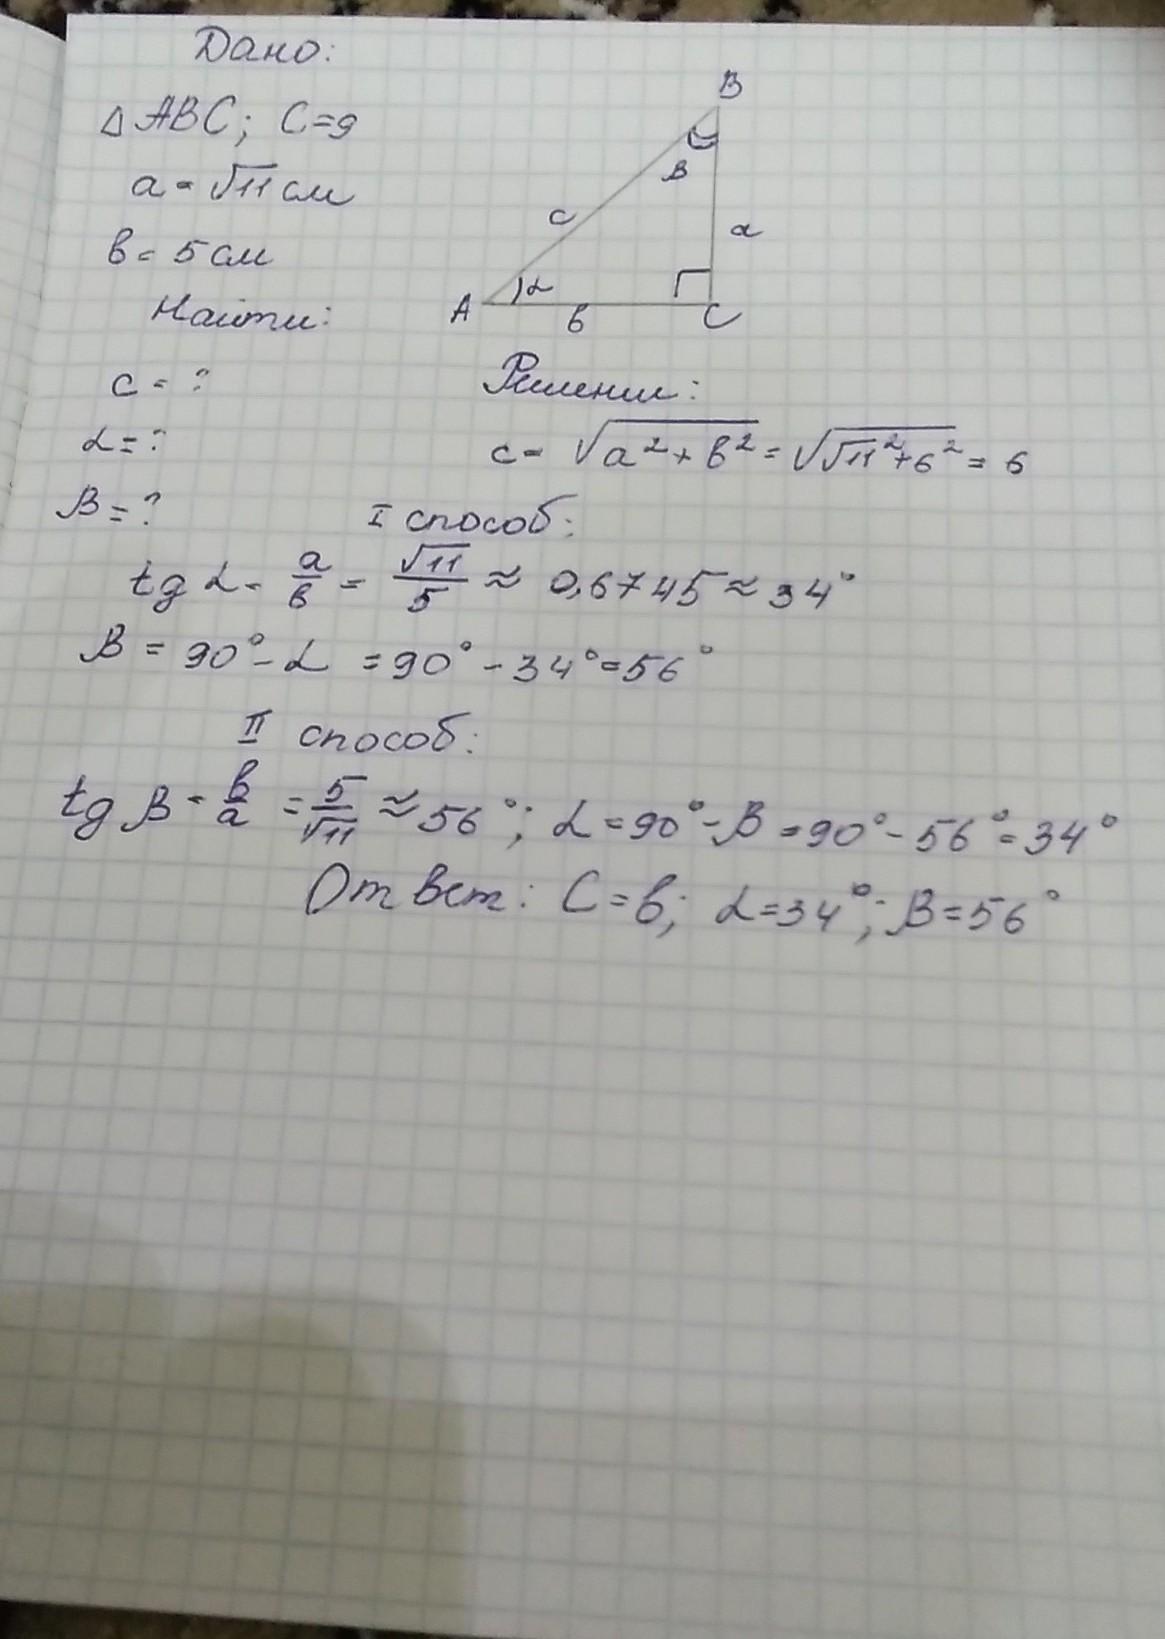 Дано:
△ ABC; C=9
a = √11 см
в = 5 см
Найти:
c = ?
α = ?
β = ?
B
β
c
a
α
A
б
C
Решение:
c = √(a² + в²) = √(√11² + 6²) = 6
I способ:
tg α = a/в = √11/5 ≈ 0,6745 ≈ 34°
β = 90° - α = 90° - 34° = 56°
II способ:
tg β = в/a = 5/√11 ≈ 56°; α = 90° - β = 90° - 56° = 34°
Ответ: C = 6; α = 34°; β = 56°